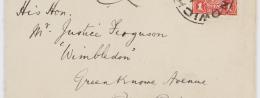 His Hon.
Mr. Justice Ferguson
"Wimbledon"
Greenknowe Avenue